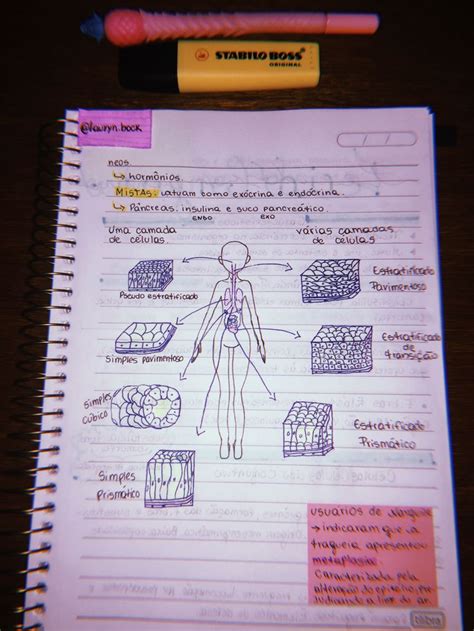 STABILO BOSS
ORIGINAL
@lauryn.book
neos.
↳ hormônios.
Mistas: atuam como exócrina e endócrina.
↳ Pâncreas. insulina e suco pancreático.
ENDO EXO
uma camada
de celulas
várias camadas
de celulas
Pseudo estratificado
Estratificado
Pavimentoso
Simples pavimentoso
Estratificado
de
transição
Simples
cúbico
Estratificado
Prismático
Simples
Prismático
usuários de
→ indicaram que a
traqueia apresentou
metaplasia.
Caracterizada pela
alteração do epitélio, pre-
judicando a
tilibra